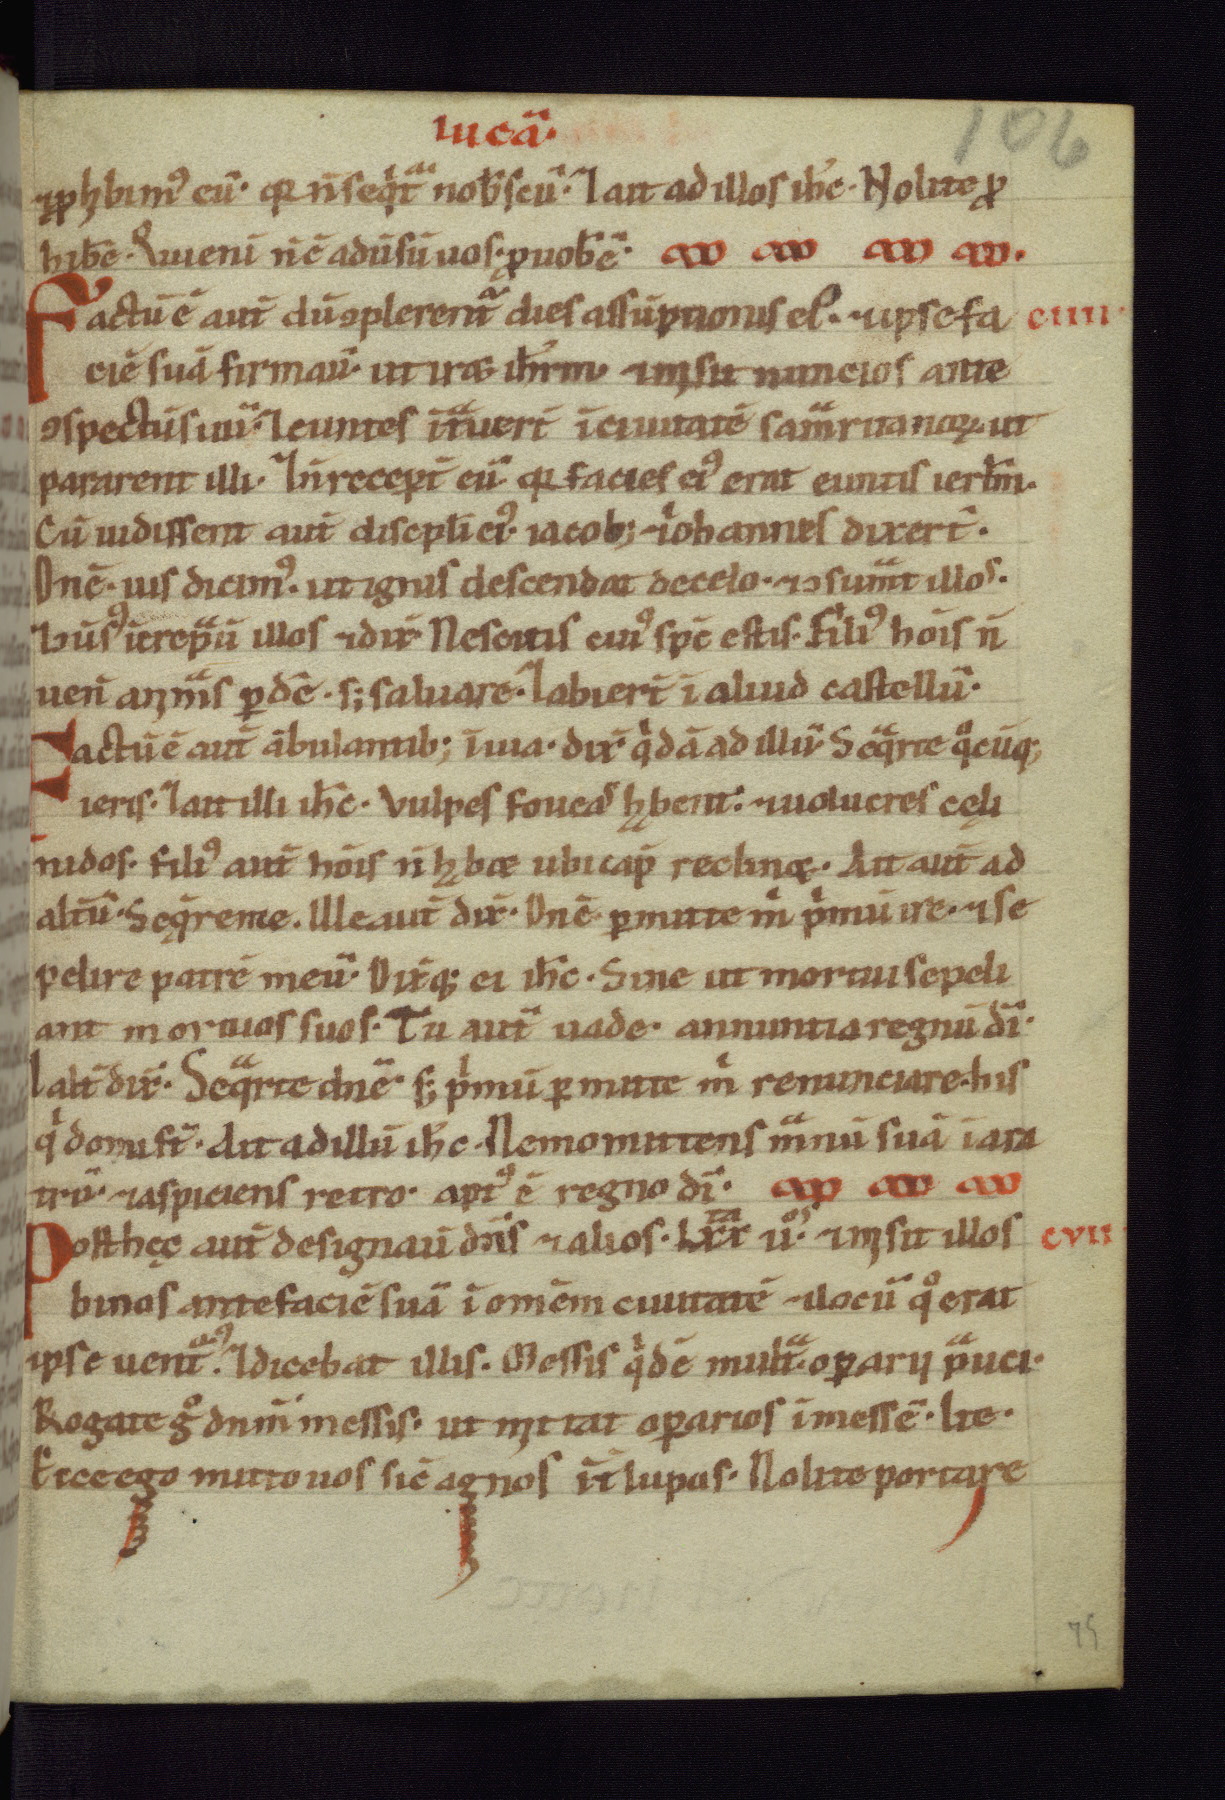 lucā·
106
⁊ꝓhibim᷒ eū· qꝛ n̄ seqͥt᷑ nob̄scū· ⁊ ait ad illos ih̄c· Nolite ꝓ
hib̄e· Qͥ ueni n̄ ē adūsū uos· ꝓ uob̄ ē·
Factū ē aut̄ dū ꝯplerent᷑ dies assūptionis ei᷒· ⁊ ipse fa
ciē suā firmau̅· ut iret ih̄rlm· ⁊ misit nuncios ante
ꝯspectū suū· ⁊ euntes ītͣuert̄ ī ciuitatē samͣritanoꝝ· ut
pararent illi· ⁊ n̄ recept̄ eū· qꝛ facies ei᷒ erat euntis ierl̄m·
Cū uidissent aut̄ discipl̄i ei᷒· iacob; ⁊ iohannes dixert̄·
Dn̄e· uis dicim᷒· ut ignis descendat de celo· ⁊ ꝯsumͣt illos·
⁊ ꝯūs᷒ īcrepͣu̅ illos ⁊ dix̄· Nescitis cui᷒ sp̄c estis· Fili᷒ hōis n̄
uen̄ animͣs ꝑdē· s; saluare· ⁊ abiert̄ ī aliud castellū·
Factū ē aut̄ ābulantib; ī uia· dix̄ qͥdā ad illū· Seqͣr te qͦcūq;
ieris· ⁊ ait illi ih̄c· Vulpes foueas hn̄bent· ⁊ uolucres cęli
nidos· fili᷒ aut̄ hōis n̄ hn̄bet ubi cap̄ reclinet· Ait aut̄ ad
altū· Seqͤre me. Ille aut̄ dix̄· Dn̄e ꝑmitte mͥ pͥmū ire· ⁊ se
pelire patrē meū· Dix̄q; ei ih̄c· Sine ut mortui sepeli
ant mortuos suos· Tu aut̄ uade· annuntia regnū dī·
⁊ alt̄ dix̄· Seqͣr te dn̄e· s; pͥmū ꝑmitte mͥ renunciare· his
qͥ domi st̄· Ait ad illū ih̄c· Nemo mittens mͣnū suā ī ara
trū· ⁊ aspiciens retro· apt᷒ ē regno dī·
Post hęc aut̄ designau̅ dn̄s ⁊ alios· lxxta ii̅os· ⁊ misit illos
binos ante faciē suā ī omēm ciuitatē ⁊ locū qͦ erat
ipse uent᷒· ⁊ dicebat illis· Messis qͥdē multͣ· oꝑarij pͣuci·
Rogate gͦ dnm̄ messis· ut mittat oꝑarios ī messē· Ite·
Ecce ego mitto uos sic̄ agnos īt̄ lupos· Nolite portare
ciiii·
cvii
75